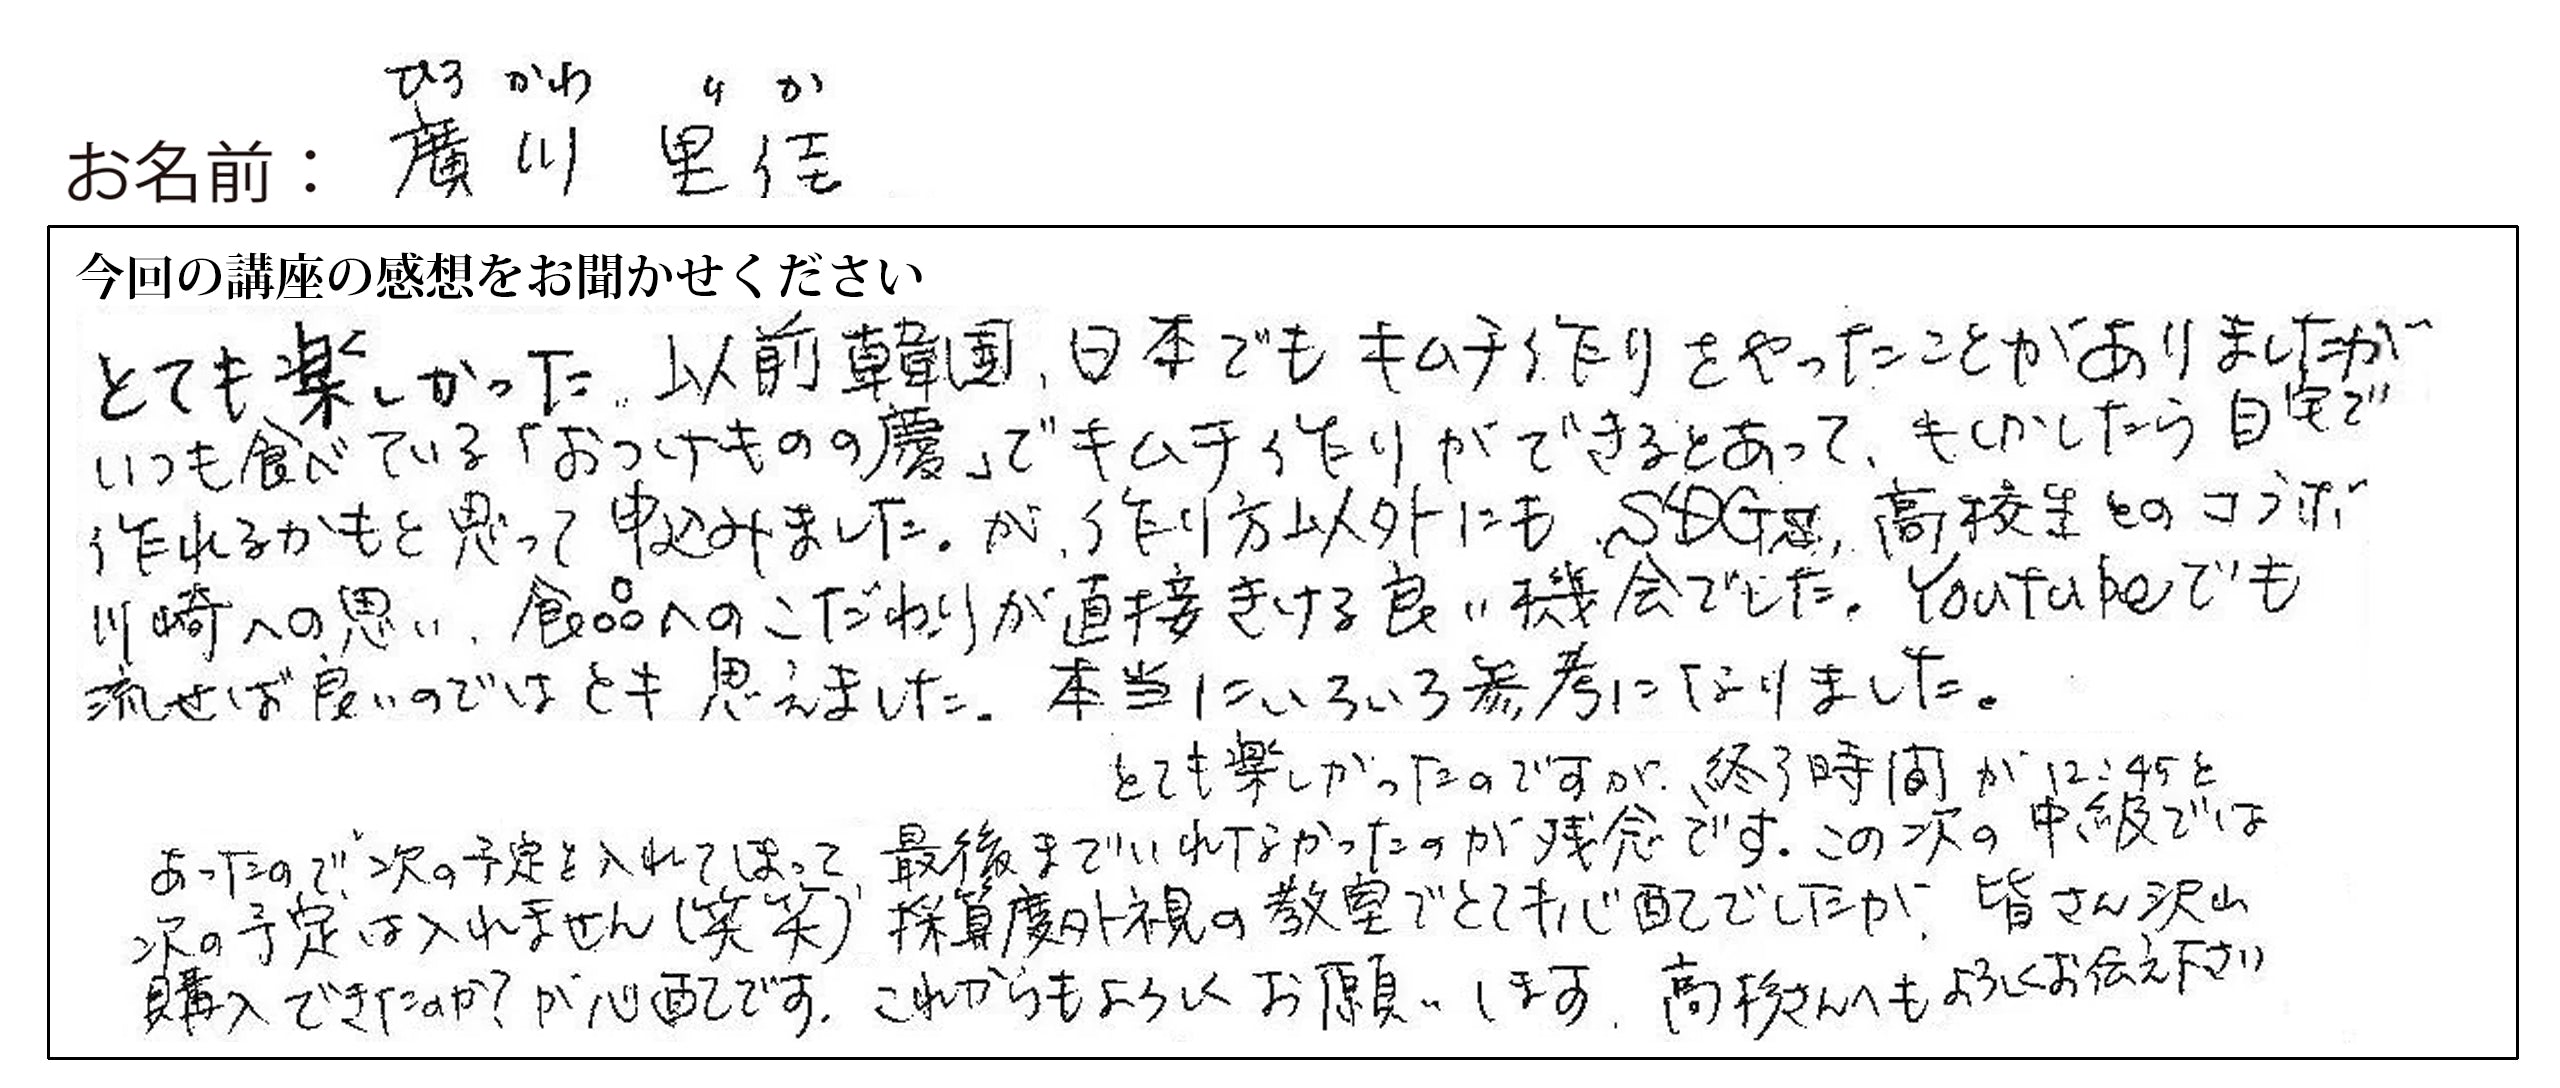 ひろ かわ り か
お名前： 廣川 里佳
今回の講座の感想をお聞かせください
とても楽しかった。以前韓国、日本でもキムチ作りをやったことがありましたが
いつも食べている「おつけものの慶」でキムチ作りができるとあって、もしかしたら自宅で
作れるかもと思って申込みました。が、作り方以外にも、SDGs、高校生とのコラボ
川崎への思い、食品へのこだわりが直接きける良い機会でした。Youtubeでも
流せば良いのではとも思えました。本当にいろいろ参考になりました。
とても楽しかったのですが、終了時間が12:45と
あったので、次の予定を入れてしまって 最後までいれなかったのが残念です。この次の中級では
次の予定は入れません（笑笑） 採算度外視の教室でとても心配でしたが、皆さん沢山
購入できたのか？が心配です。これからもよろしくお願いします。高杉さんへもよろしくお伝え下さい